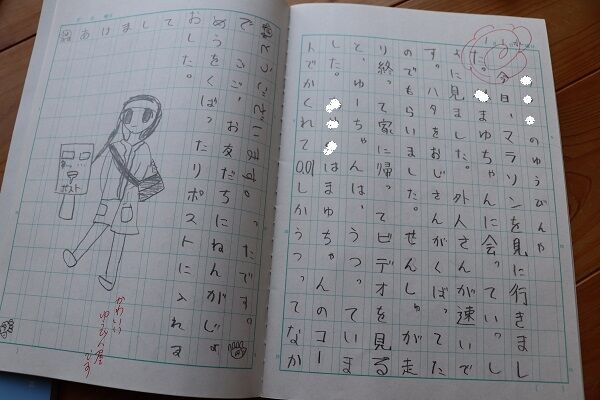 のゆうびんや
今日、マラソンを見に行きまし
た。まゆちゃんに会っていっし
ょに見ました。外人さんが速いで
す。ハタをおじさんがくばってた
のでもらいました。せんしゅが走
り終って家に帰ってビデオを見る
と、ゆーちゃんは、うつっていま
した。はまゆちゃんのコー
トでかくれて0.01しかうつってなか
ったです。
ごご、お友だちにねんがじょ
うをくばったりポストに入れま
した。
あけましておめでとうございます。
ポスト
かわいい
ゆうびん屋さんです